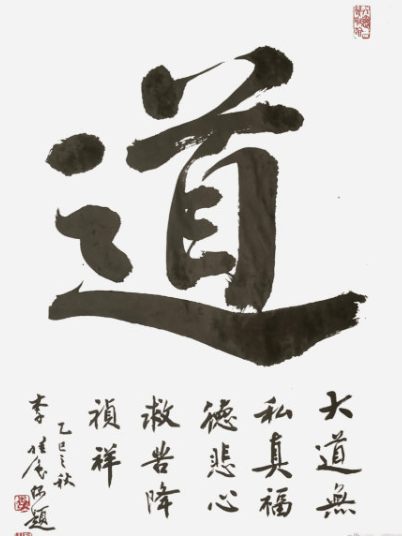 道
大道無
私真福
德悲心
救苦降
禎祥
乙巳之秋
李 題